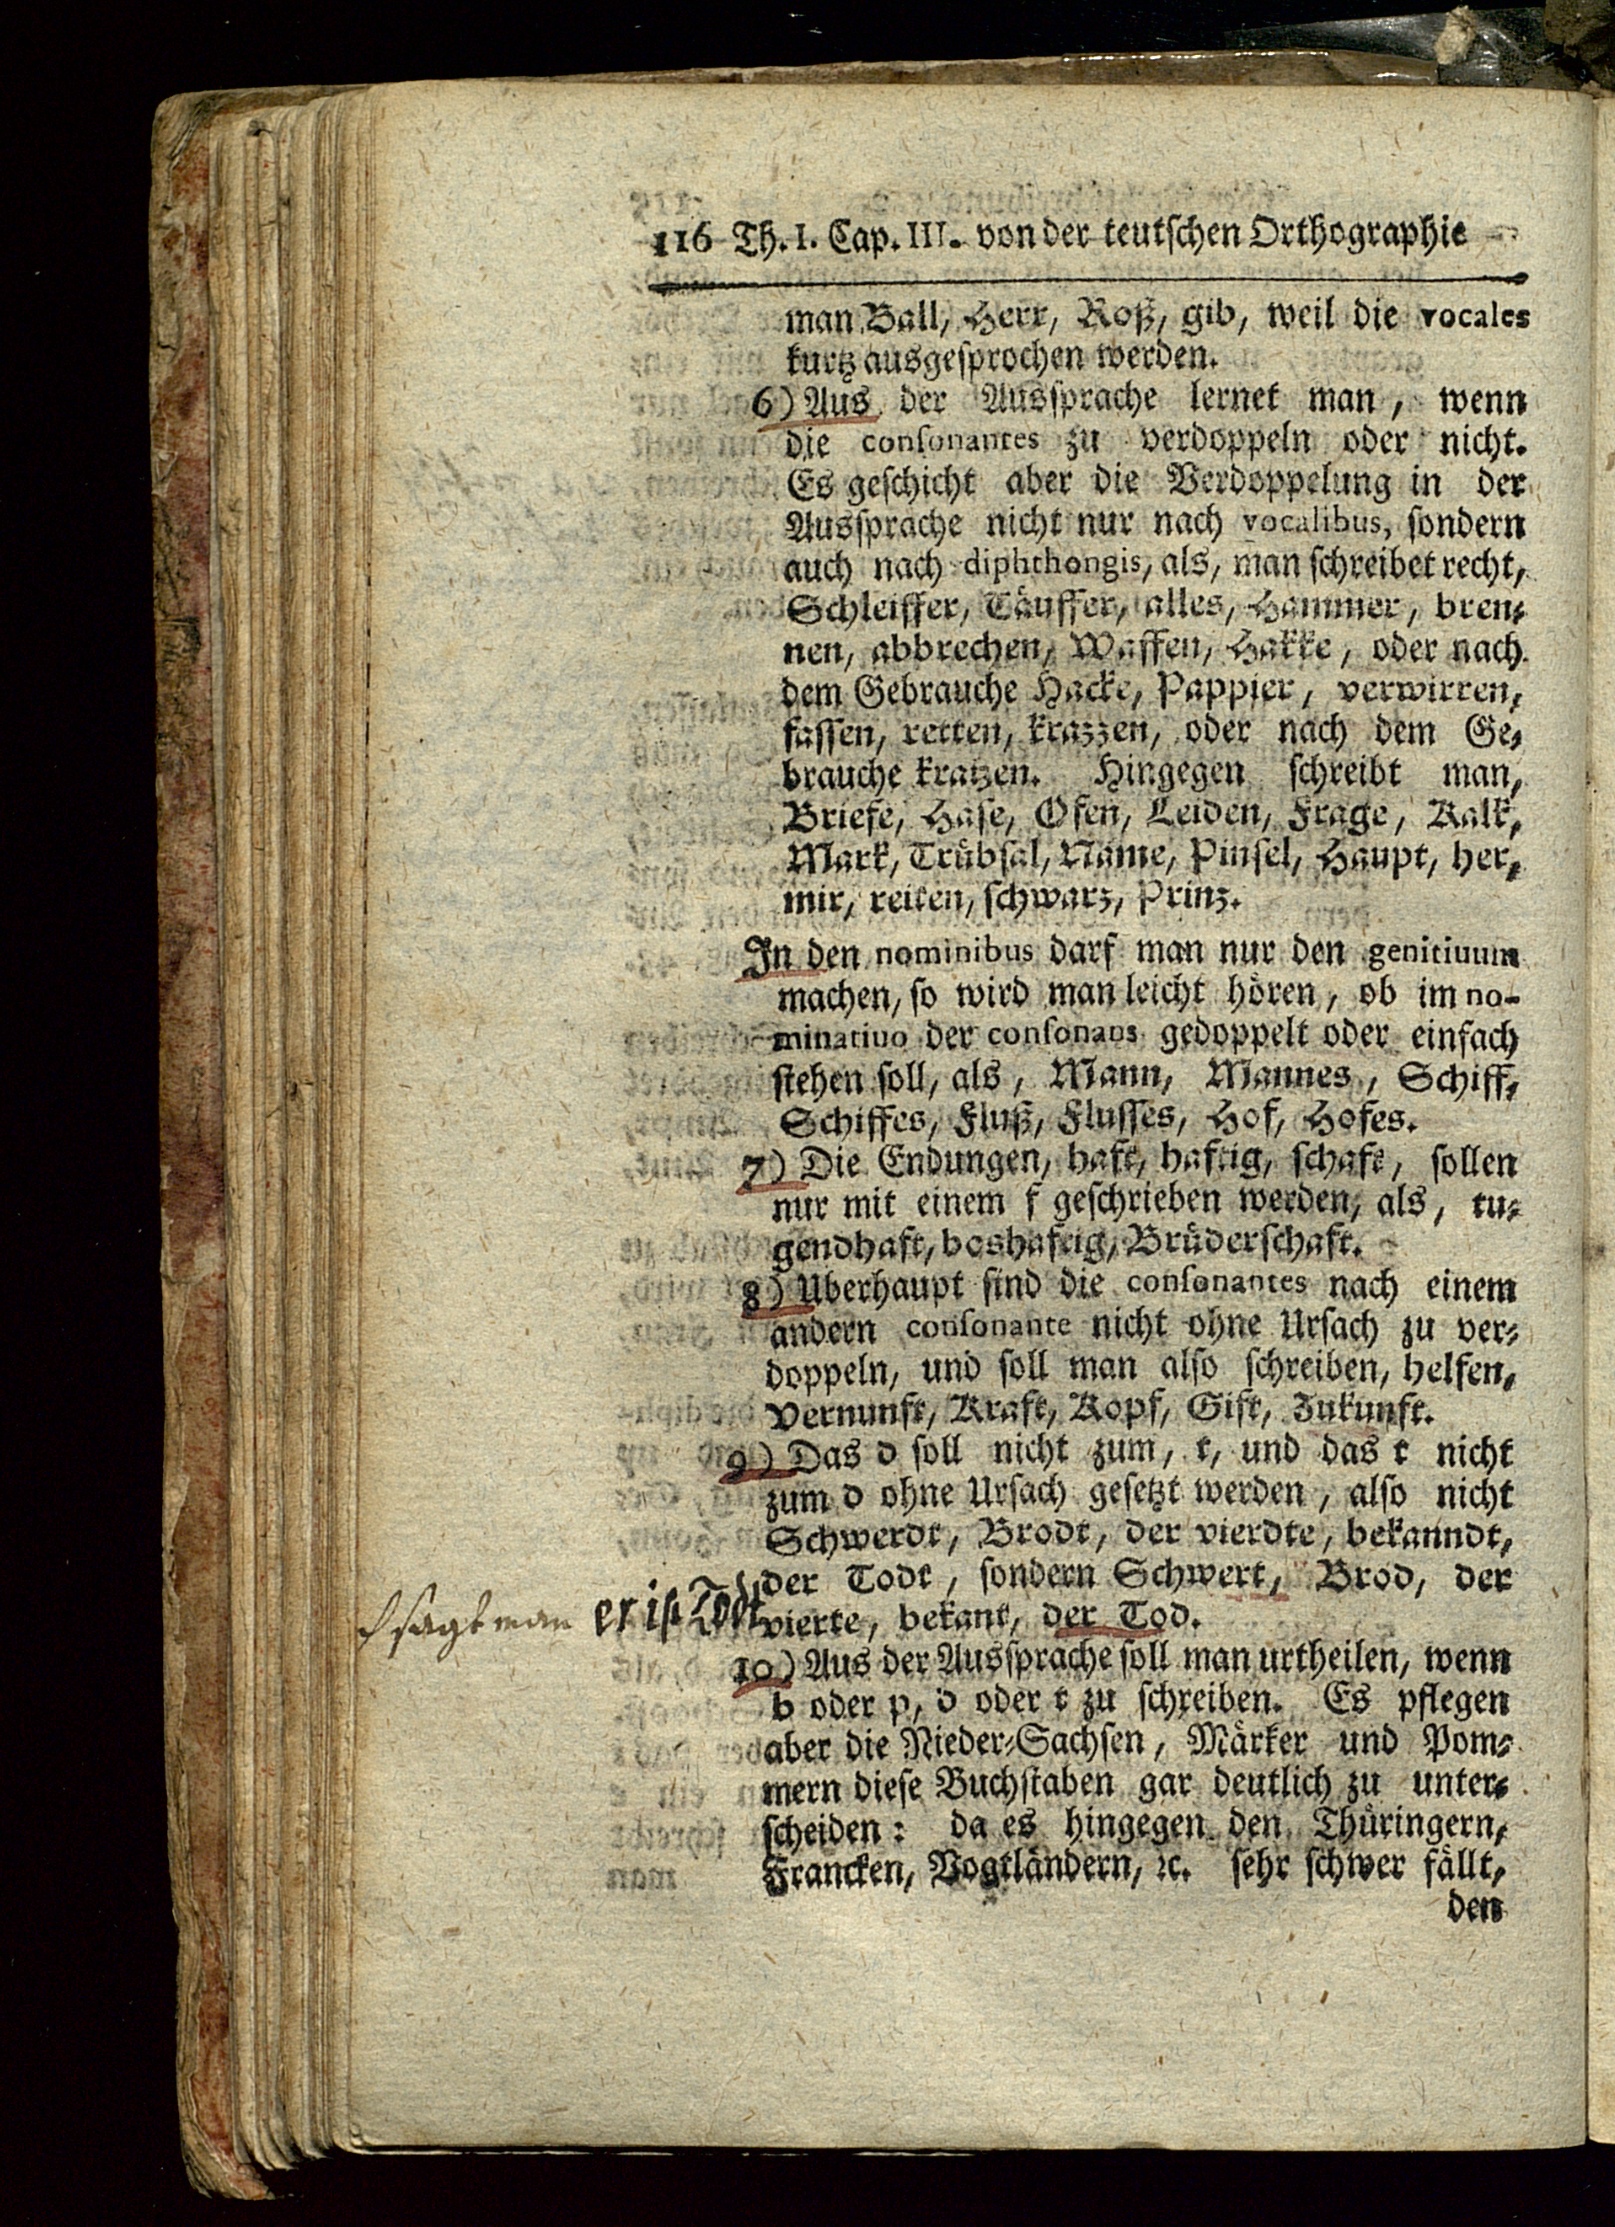 116 Th. I. Cap. III. von der teutschen Orthographie
man Ball, Herr, Roß, gib, weil die vocales
kurtz ausgesprochen werden.
6) Aus der Aussprache lernet man, wenn
die consonantes zu verdoppeln oder nicht.
Es geschicht aber die Verdoppelung in der
Aussprache nicht nur nach vocalibus, sondern
auch nach diphthongis, als, man schreibet recht,
Schleiffer, Täuffer, alles, Hammer, bren-
nen, abbrechen, Waffen, Hakke, oder nach
dem Gebrauche Hacke, Pappier, verwirren,
fassen, retten, krazzen, oder nach dem Ge-
brauche kratzen. Hingegen schreibt man,
Briefe, Hase, Ofen, Leiden, Frage, Kalk,
Mark, Trübsal, Name, Pinsel, Haupt, her,
mir, reiten, schwarz, Prinz.
In den nominibus darf man nur den genitiuum
machen, so wird man leicht hören, ob im no-
minatiuo der consonans gedoppelt oder einfach
stehen soll, als, Mann, Mannes, Schiff,
Schiffes, Fluß, Flusses, Hof, Hofes.
7) Die Endungen, haft, haftig, schaft, sollen
nur mit einem f geschrieben werden, als, tu-
gendhaft, boshaftig, Brüderschaft.
8) Uberhaupt sind die consonantes nach einem
andern consonante nicht ohne Ursach zu ver-
doppeln, und soll man also schreiben, helfen,
Vernunft, Kraft, Kopf, Gift, Zukunft.
9) Das d soll nicht zum, t, und das t nicht
zum d ohne Ursach gesetzt werden, also nicht
Schwerdt, Brodt, der vierdte, bekanndt,
der Todt, sondern Schwert, Brod, der
vierte, bekant, der Tod.
sagt man er ist Todt
10) Aus der Aussprache soll man urtheilen, wenn
b oder p, d oder t zu schreiben. Es pflegen
aber die Nieder-Sachsen, Märker und Pom-
mern diese Buchstaben gar deutlich zu unter-
scheiden: da es hingegen den Thüringern,
Francken, Vogtländern, ꝛc. sehr schwer fällt,
den